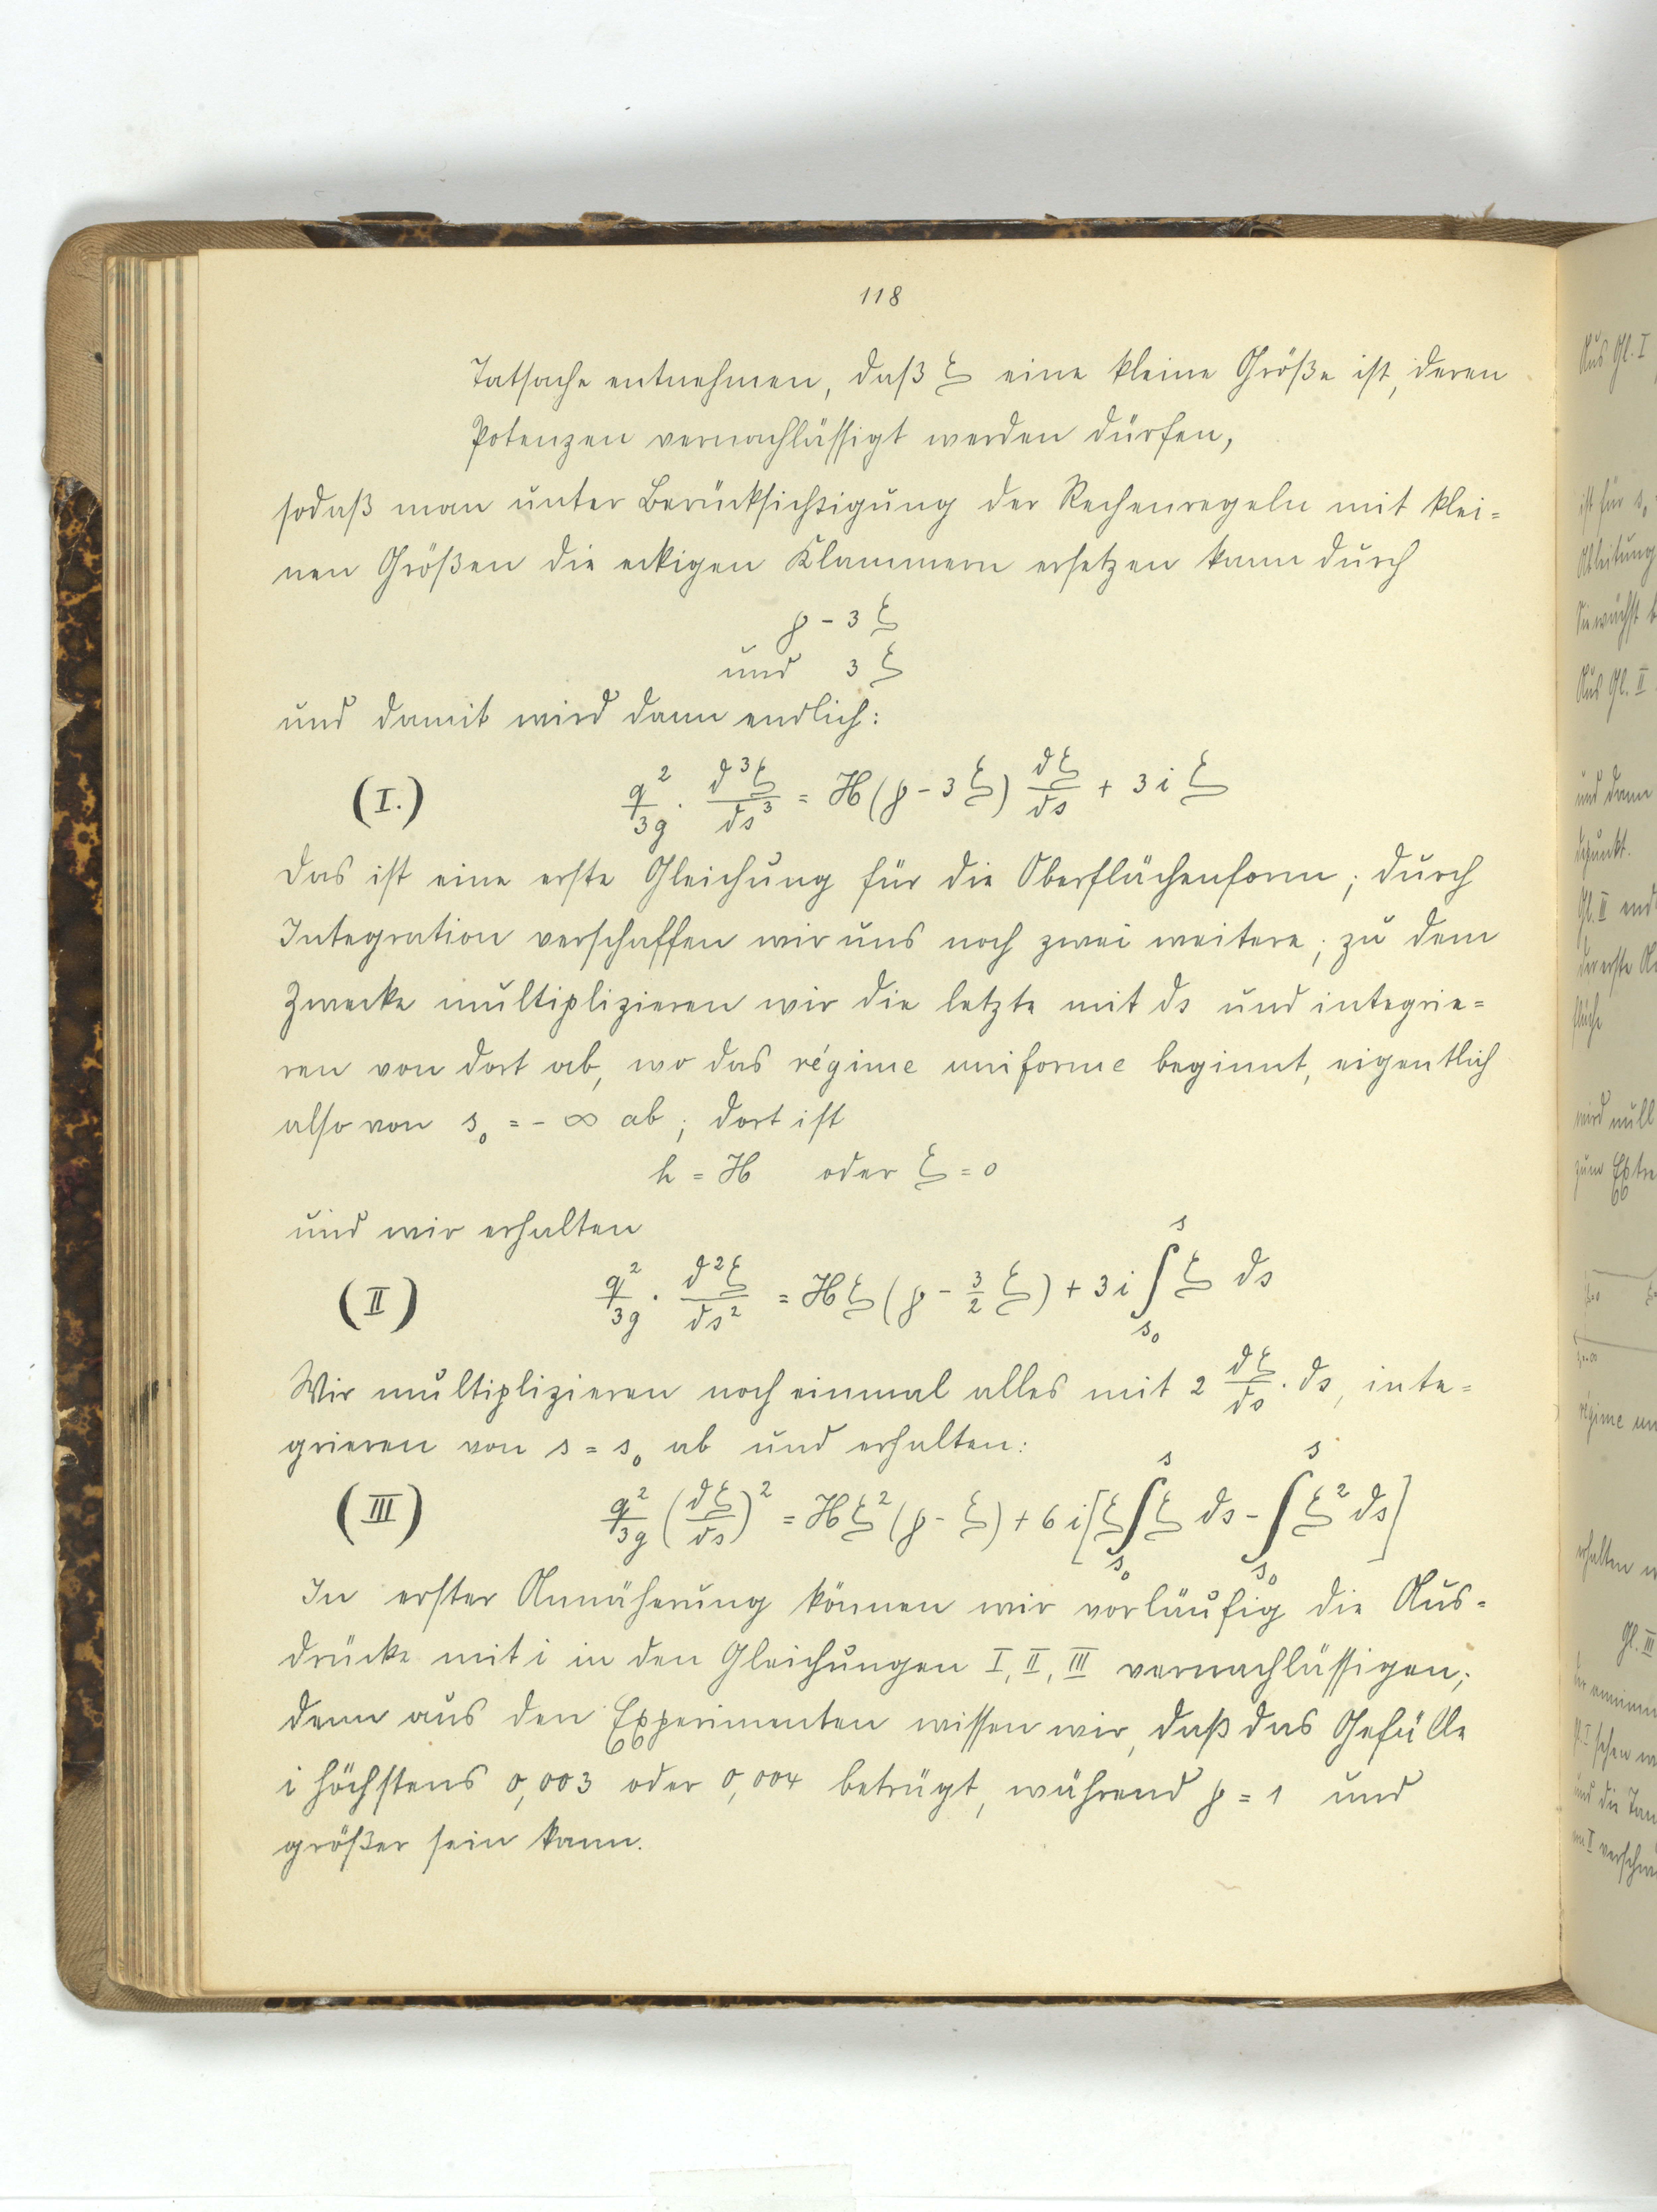 118
Tatsache entnehmen, daß ξ eine kleine Größe ist, deren
Potenzen vernachlässigt werden dürfen,
sodaß man unter Berücksichtigung der Rechenregeln mit klei=
nen Größen die eckigen Klammern ersetzen kann durch
p - 3 ξ
und 3 ξ
und damit wird dann endlich:
(I.) q²/3g · d³ξ/ds³ = H (p - 3 ξ) dξ/ds + 3 i ξ
das ist eine erste Gleichung für die Oberflächenform; durch
Integration verschaffen wir uns noch zwei weitere; zu dem
Zwecke multiplizieren wir die letzte mit ds und integrie=
ren von dort ab, wo das régime uniforme beginnt, eigentlich
also von s₀ = - ∞ ab; dort ist
h = H oder ξ = 0
und wir erhalten
(II) q²/3g · d²ξ/ds² = H ξ (p - 3/2 ξ) + 3 i ∫_{s₀}^{s} ξ ds
Wir multiplizieren noch einmal alles mit 2 dξ/ds · ds, inte=
grieren von s = s₀ ab und erhalten:
(III) q²/3g (dξ/ds)² = H ξ² (p - ξ) + 6 i [ξ ∫_{s₀}^{s} ξ ds - ∫_{s₀}^{s} ξ² ds]
In erster Annäherung können wir vorläufig die Aus=
drücke mit i in den Gleichungen I, II, III vernachlässigen;
denn aus den Experimenten wissen wir, daß das Gefälle
i höchstens 0,003 oder 0,004 beträgt, während p = 1 und
größer sein kann.
Aus Gl. I
ist für s₀
Ableitung
Sie wächst
Aus Gl. II
und dann
Gl. II
der erste
fläche
wird null
zum
régime
erhalten
Gl. III
sehen
und die